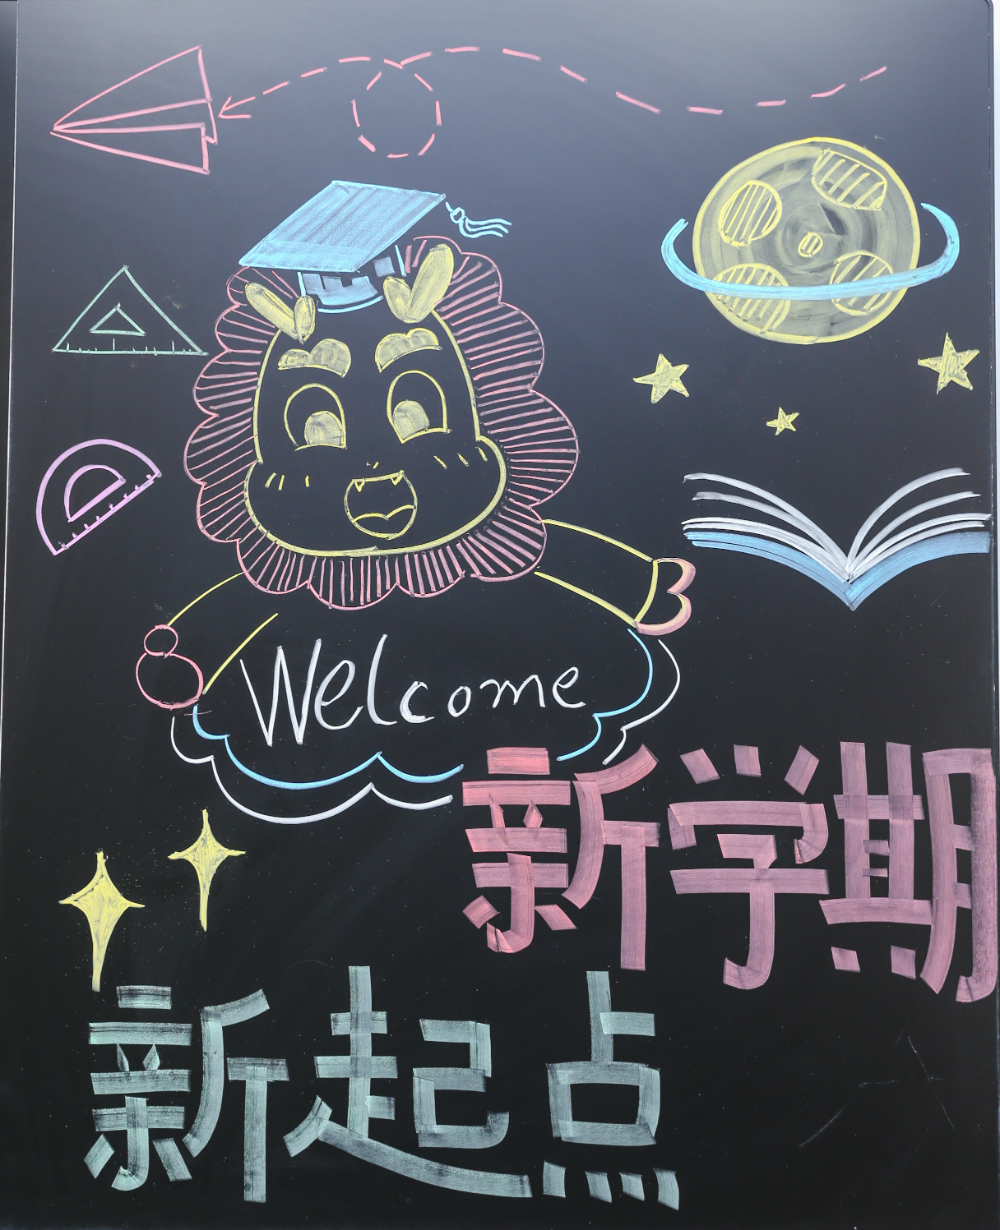 Welcome
新学期
新起点